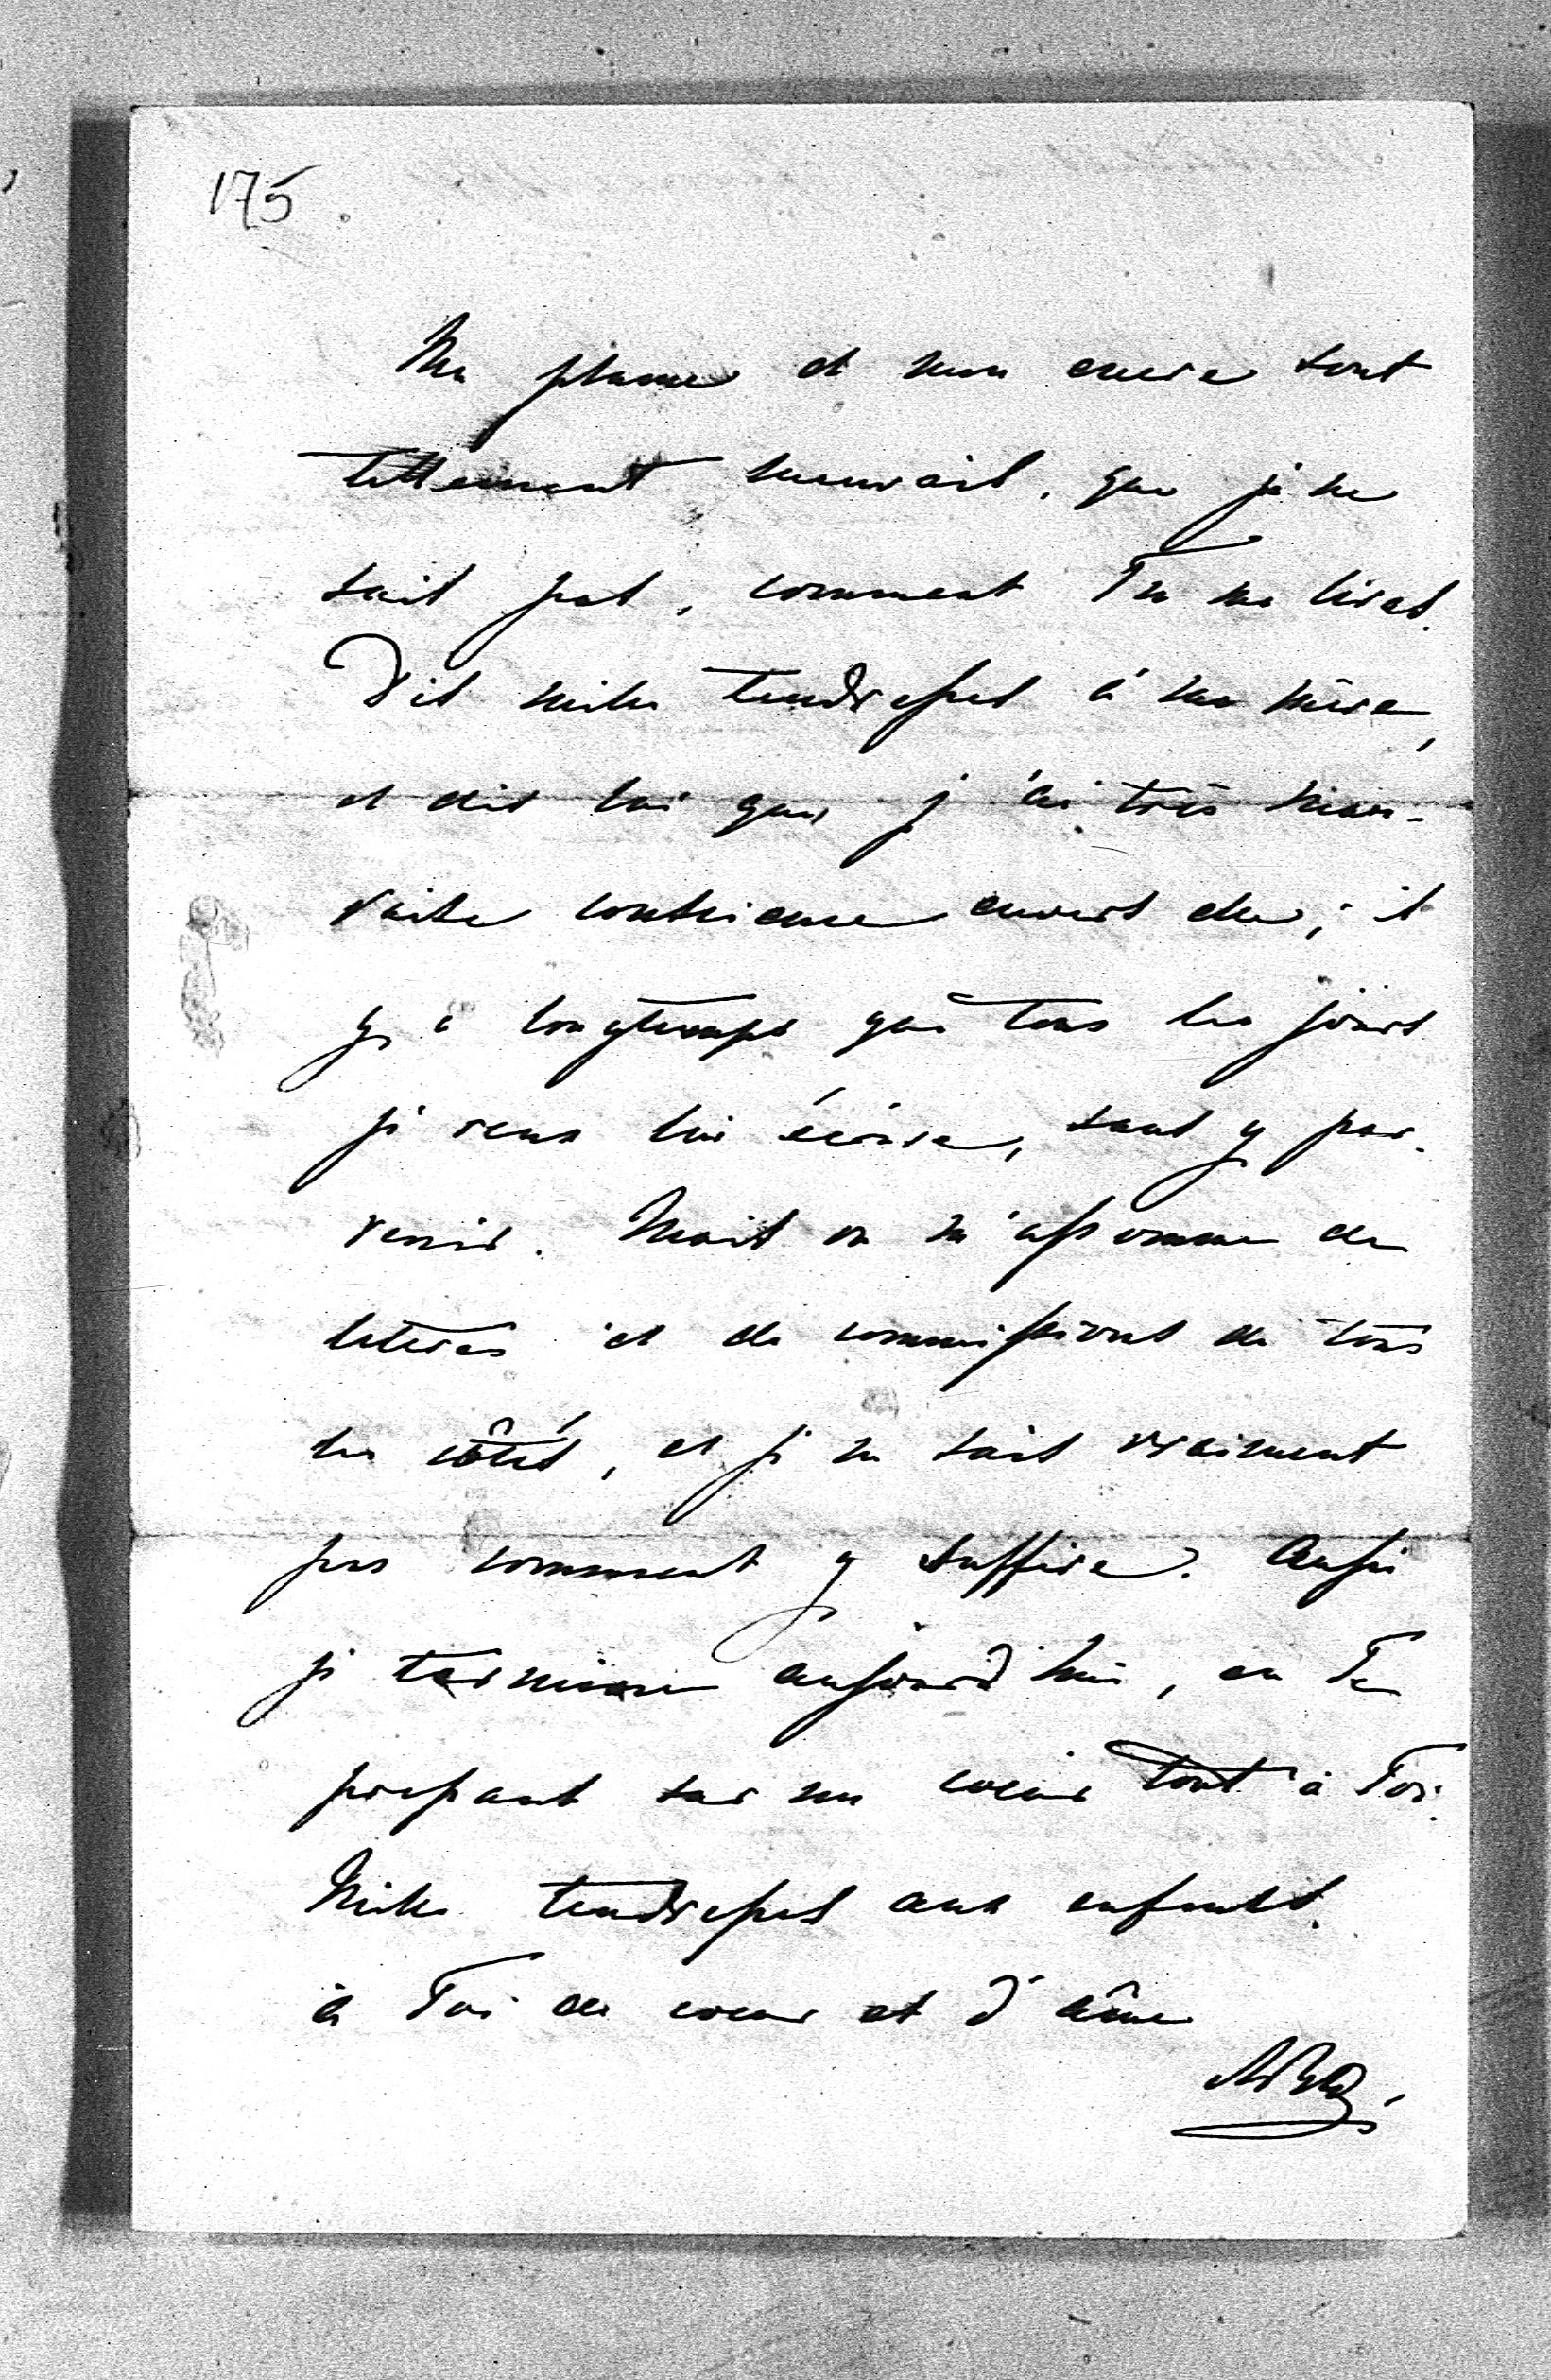 175
Ma plume et mon encre sont
tellement mauvais, que je ne
sait pas, comment Tu me liras.
Dis milles tendresses à ma mère,
et dis lui que j'ai très mau-
vaise conscience envers elle; il
y a longtemps que tous les jours
je veux lui écrire, sans y par-
venir. Mais on m'assomme de
lettres et de commissions de tous
les côtés, et je ne sais vraiment
pas comment y suffire. Aussi
je termine aujourd'hui, en Te
pressant sur un coeur tout à Toi.
Milles tendresses aux enfants.
à Toi de coeur et d'âme